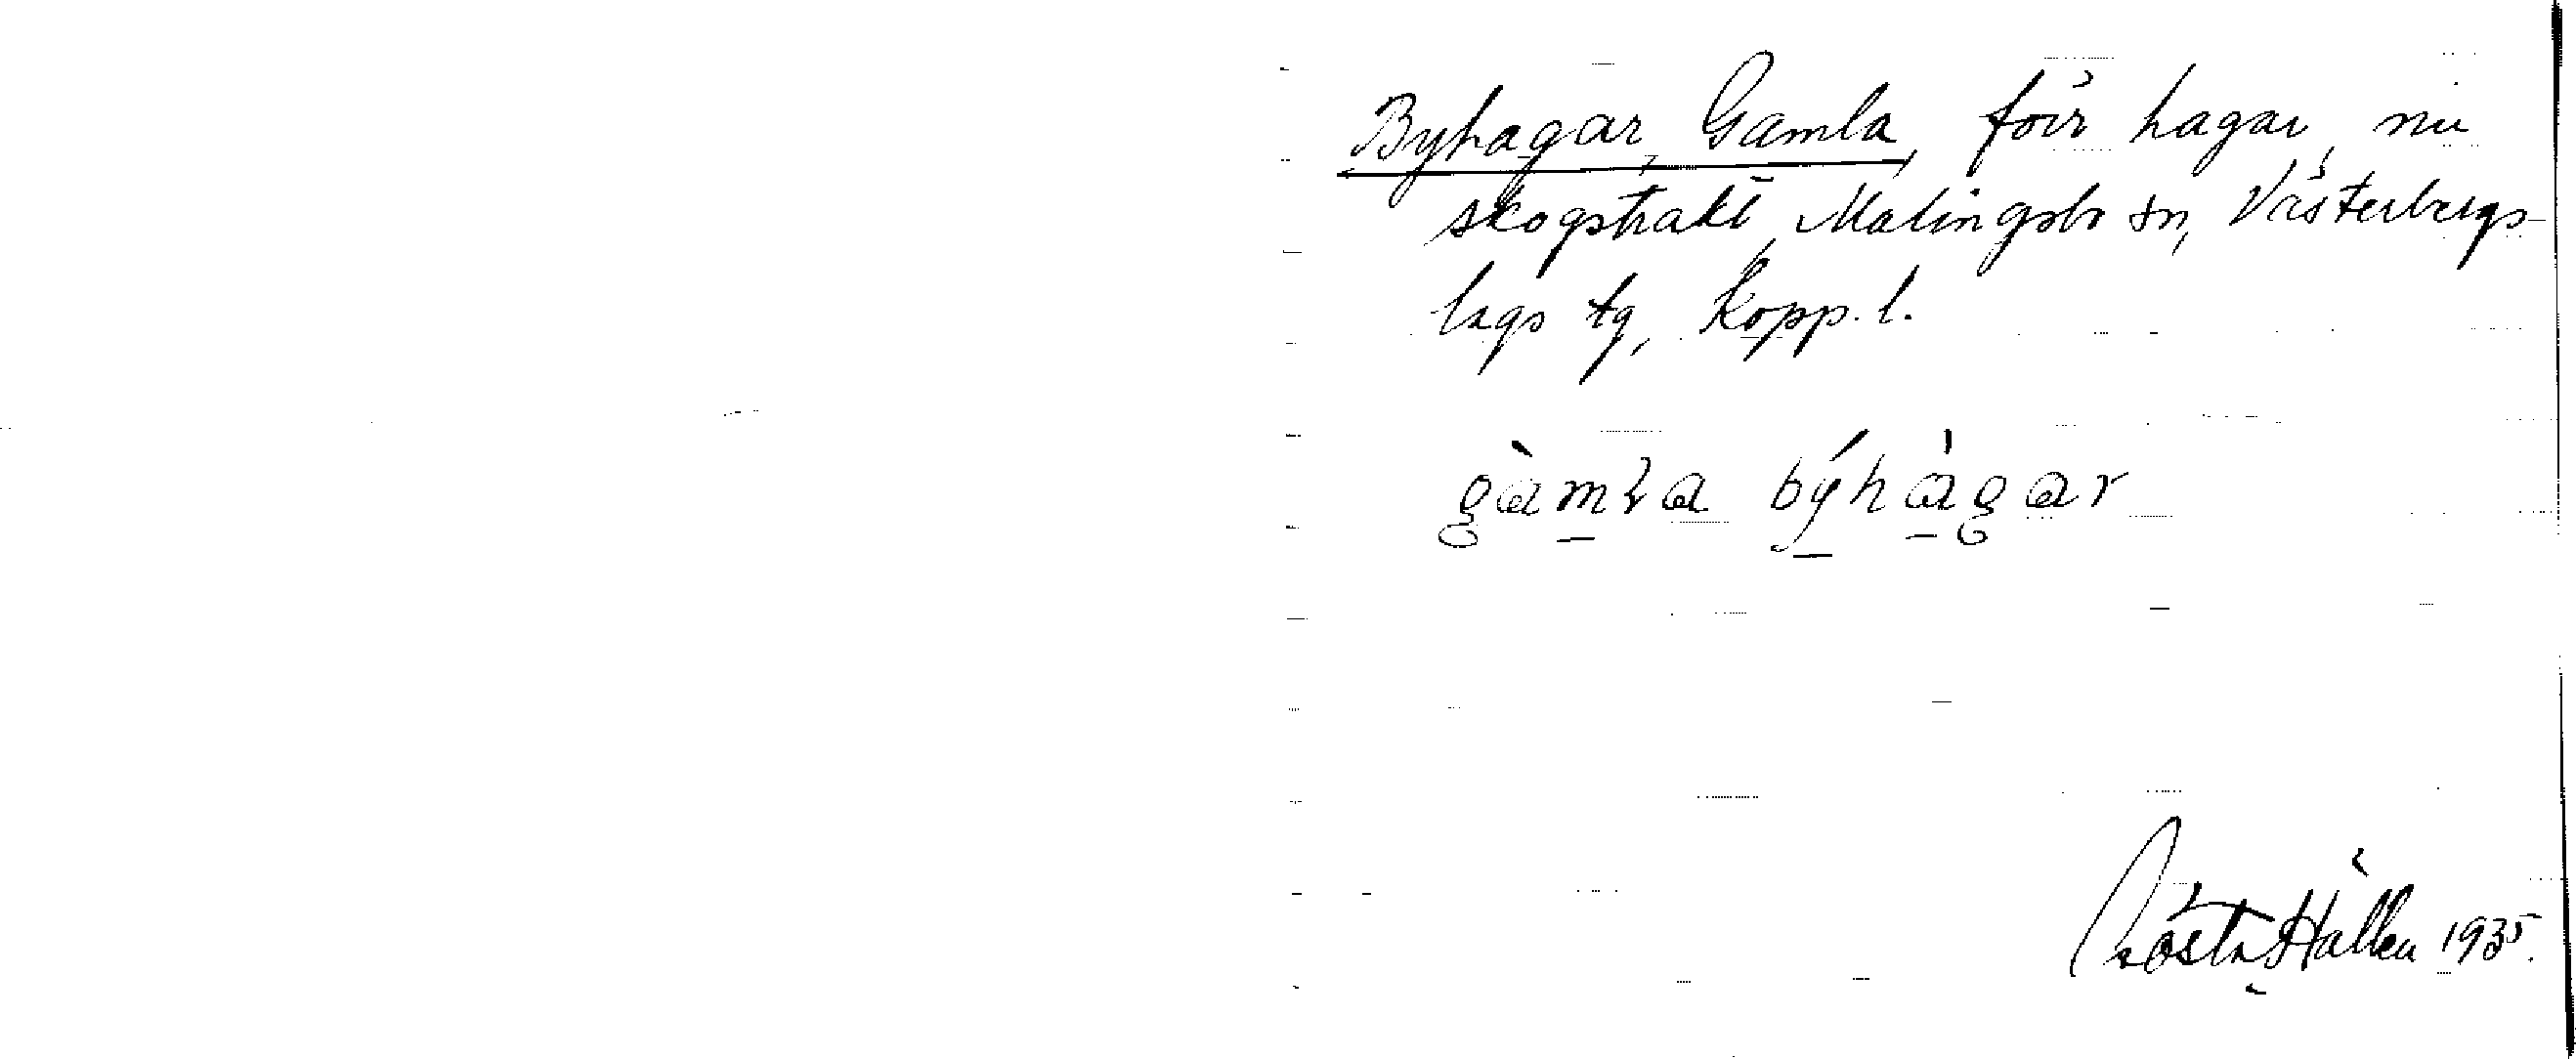 Byhagar, Gamla, förr hagar, nu
skogstrakt, Malingsbo sn, Västerbergs-
lags tg, Kopp. l.
gàmla býhàgar
Gösta Hållén 1935.